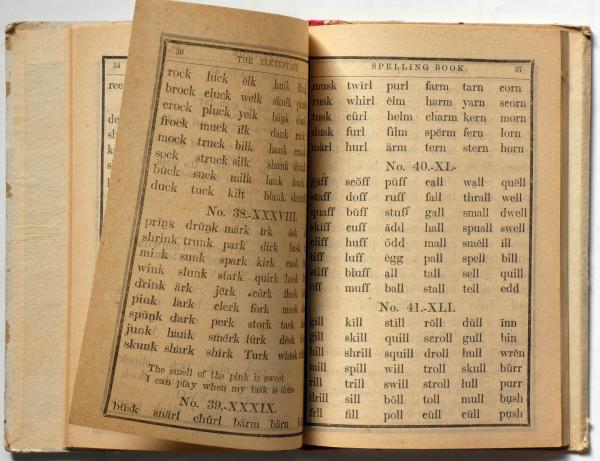 34
ree
36 THE ELEMENTARY
rock luck elk husk
brock cluck welk skulk
crock pluck yelk bank
frock muck ilk dank rusk
mock truck bilk hank
sock struck silk shank
bŭck suck milk lank
duck tuck kilt blank
No. 38.-XXXVIII.
prĭnk drŭnk märk ïrk ask
shrink trunk park dirk bask
mink sunk spark kirk cask
wink slunk stark quirk
drink ärk jẽrk côrk flask
pink lark clerk fork mask
spŭnk dark perk stork task
junk hank smẽrk lûrk dĕsk
skunk shark shirk Turk whisk
The smell of the pink is sweet
I can play when my task is done
No. 39.-XXXIX.
bŭsk snärl chûrl bärm bärn
SPELLING BOOK. 37
musk twïrl purl farm tarn corn
rusk whirl ĕlm harm yarn scorn
tusk cûrl helm charm kern morn
dusk furl film spẽrm fern lorn
märl hurl ärm tern stern horn
No. 40.-XL.
gȧff scŏff pŭff call wall quĕll
staff doff ruff fall thrall well
quaff bŭff stuff gall small dwell
skiff cuff ădd hall squall swell
cliff huff ŏdd mall smĕll ill
tiff luff ĕgg pall spell bill
stiff bluff all tall sell quill
ŏff muff ball stall tell edd
No. 41.-XLI.
gill kĭll stĭll rōll dŭll ĭnn
gill skill quill scroll gull bin
hill shrill squill droll hull wrĕn
mill spill will troll skull bûrr
rill trill swill stroll lull purr
drill sill bōll toll mull bush
frill fill poll cŭll cŭll pu̱sh